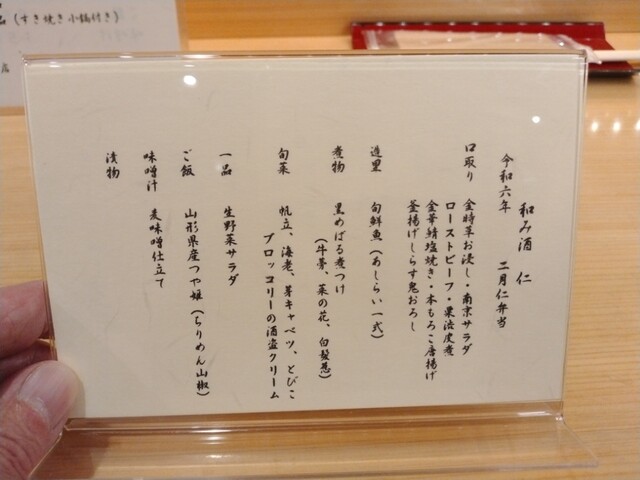 和み酒 仁
令和六年 二月仁弁当
口取り 金時草お浸し・南京サラダ
ローストビーフ・栗渋皮煮
金華鯖塩焼き・本もろこ唐揚げ
釜揚げしらす鬼おろし
造里 旬鮮魚(あしらい一式)
煮物 黒めばる煮つけ
(牛蒡、菜の花、白髪葱)
旬菜 帆立、海老、芽キャベツ、とびこ
ブロッコリーの酒盗クリーム
一品 生野菜サラダ
ご飯 山形県産つや姫(ちりめん山椒)
味噌汁 麦味噌仕立て
漬物
品(すき焼き小鍋付き)
店